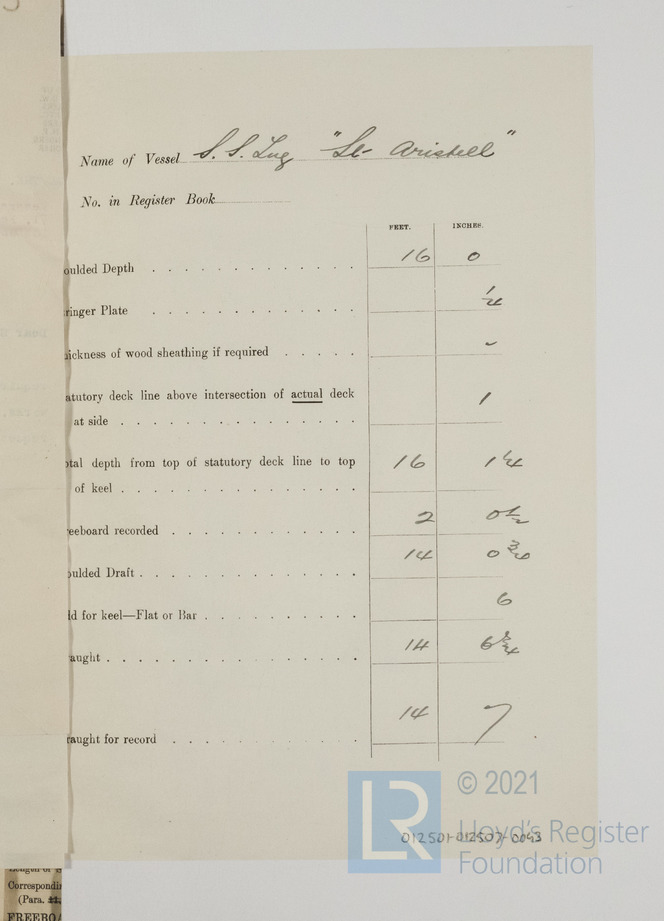 Name of Vessel S.S. Tug "St- Aristell"
No. in Register Book
FEET. INCHES.
oulded Depth 16 0
ringer Plate 1/4
ickness of wood sheathing if required -
atutory deck line above intersection of actual deck
at side 1
tal depth from top of statutory deck line to top
of keel 16 1 1/4
eeboard recorded 2 0 1/2
oulded Draft 14 0 3/4
d for keel—Flat or Bar 6
aught 14 6 3/4
aught for record 14 7
© 2021
Lloyd's Register
Foundation
LR
012501-012507-0043
Correspondi
(Para.
FREEBOA